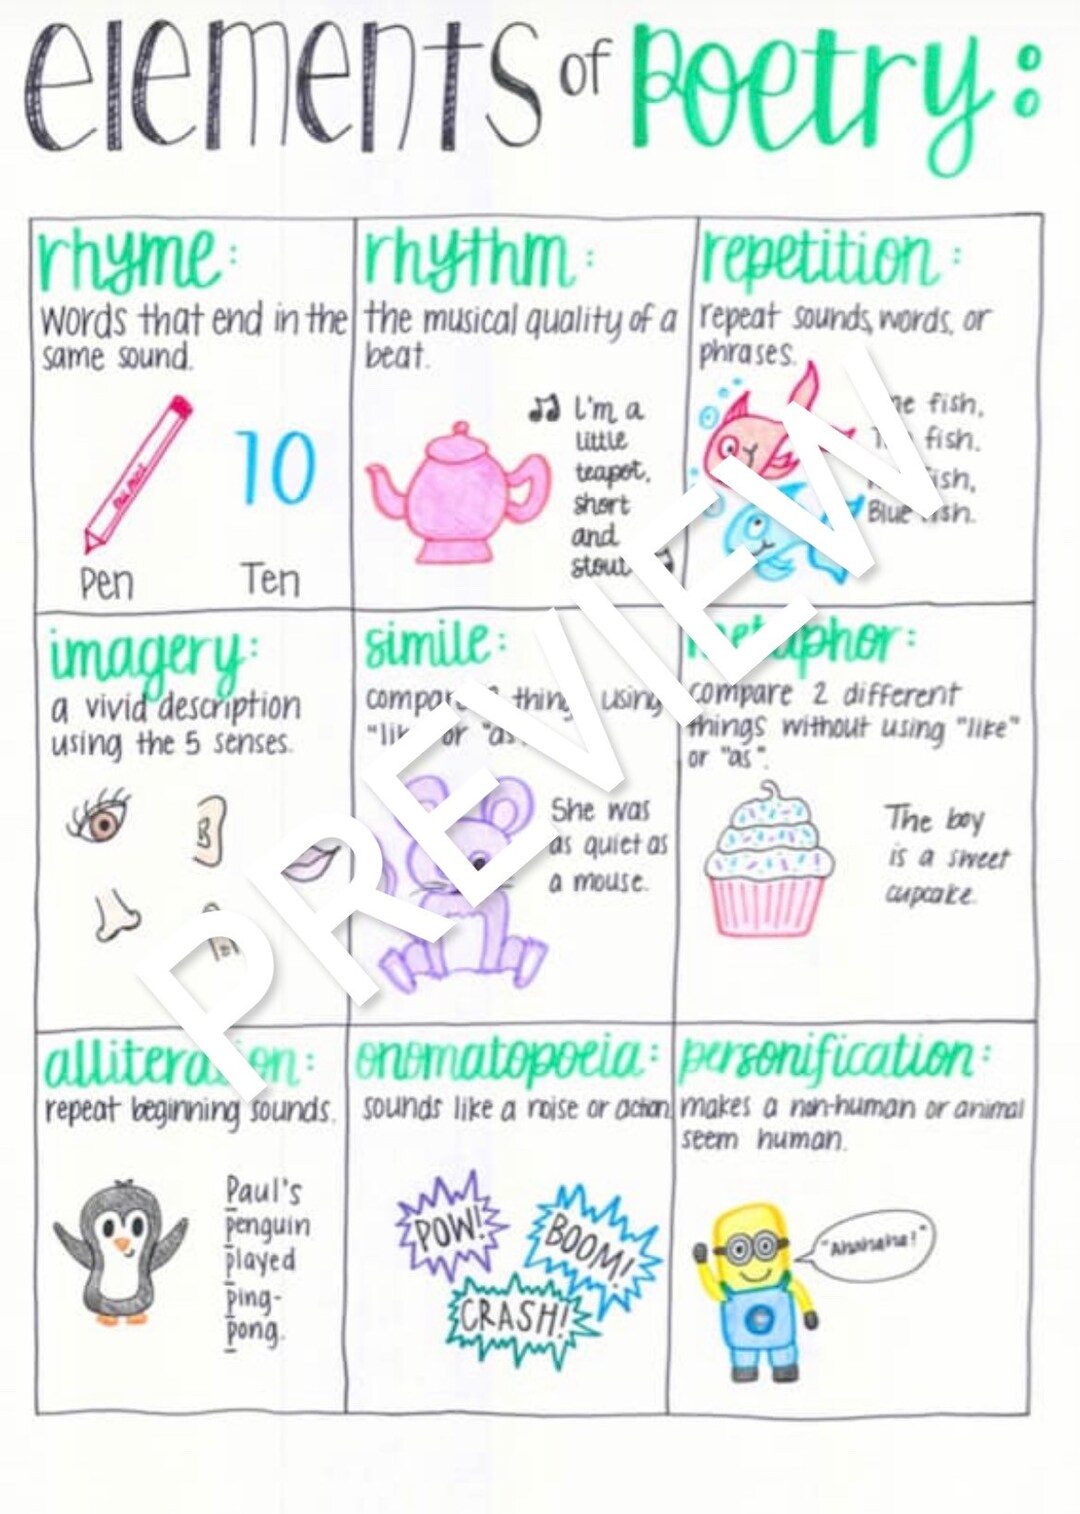 elements of poetry:
rhyme:
words that end in the
same sound.
Pen
10
Ten
rhythm:
the musical quality of a
beat.
I'm a
little
teapot,
short
and
stout
repetition:
repeat sounds, words, or
phrases.
fish,
fish.
Blue
imagery:
a vivid description
using the 5 senses.
simile:
using
or "as
She was
as quiet as
a mouse.
metaphor:
compare 2 different
things without using "like"
or "as".
The boy
is a sweet
cupcake.
alliteration:
repeat beginning sounds.
Paul's
penguin
played
ping-
pong.
onomatopoeia:
sounds like a noise or action
POW!
BOOM!
CRASH!
personification:
makes a non-human or animal
seem human.
"Ahahaha!"
PREVIEW